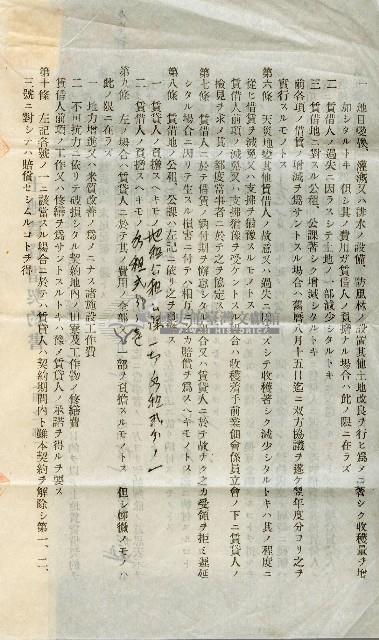 一 地目變換、灌漑又ハ排水ノ設備、防風林ノ設置其他土地改良ヲ行ヒ爲メニ著シク收穫量ヲ增
如シタルトキ 但シ其ノ費用ガ賃借人ノ負擔ナル場合ハ此ノ限ニ在ラズ
二 賃借人ノ過失ニ因ラズシテ土地ノ一部減少シタルトキ
三 賃借地ニ對スル公租、公課著シク增減シタルトキ
前各項ノ借賃ノ增減ヲ爲サントスル場合ハ舊曆八月十五日迄ニ双方協議ヲ遂ゲ翌年度分ヨリ之ヲ
實行スルモノトス
第六條 天災地變其他賃借人ノ故意又ハ過失ニ因ラズシテ收穫著シク減少シタルトキハ其ノ程度ニ
從ヒ借賃ヲ減免又ハ支拂ヲ猶豫スルモノトス
賃借人前項ノ減免又ハ支拂猶豫ヲ受ケントスル場合ハ收穫著手前業佃會係員立會ノ下ニ賃貸人ノ
檢見ヲ求メ其ノ都度當事者ニ於テ之ヲ協定スルモノトス
第七條 賃借人ニ於テ借賃ノ納付期ヲ懈怠シタル場合又ハ賃貸人ニ於テ故ナク之カ受領ヲ拒ミ遲延
シタル場合ニ因リテ生スル損害ニ付テハ相互ニ之カ賠償ヲ爲スヘキモノトス
第八條 賃借地ノ公租、公課ハ左記ニ依リ
一 賃貸人ノ負擔スヘキモノ 地租 公課
二 賃借人ノ負擔スヘキモノ
第九條 左ノ場合ハ賃貸人ニ於テ其ノ費用ノ全部又ハ一部ヲ負擔スルモノトス 但シ輕微ノモノハ
此ノ限ニ在ラズ
一 地力增進又ハ米質改善ノ爲メニナス諸施設工作費
二 不可抗力ニ依リテ破損シタル契約地內ノ田寮及工作物ノ修繕費
賃借人前項ノ工作又ハ修繕ヲ爲サントスルトキハ豫メ賃貸人ノ承諾ヲ得ルヲ要ス
第十條 左記各號ノ一ニ該當スル場合ニ於テハ賃貸人ハ契約期間內ト雖本契約ヲ解除シ第一、二、
三號ニ對シテハ賠償セシムルコトヲ得